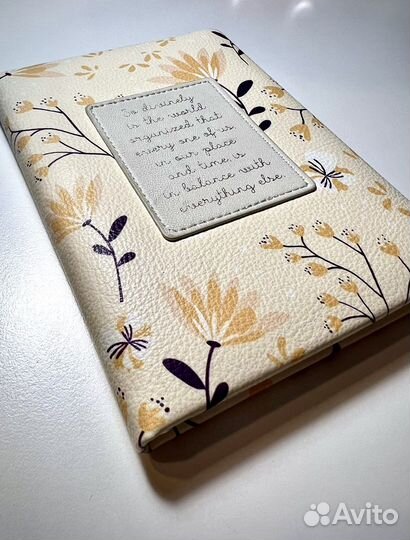 So divinely
is the world
organized that
every one of us,
in our place
and time, is
in balance with
everything else.
Avito